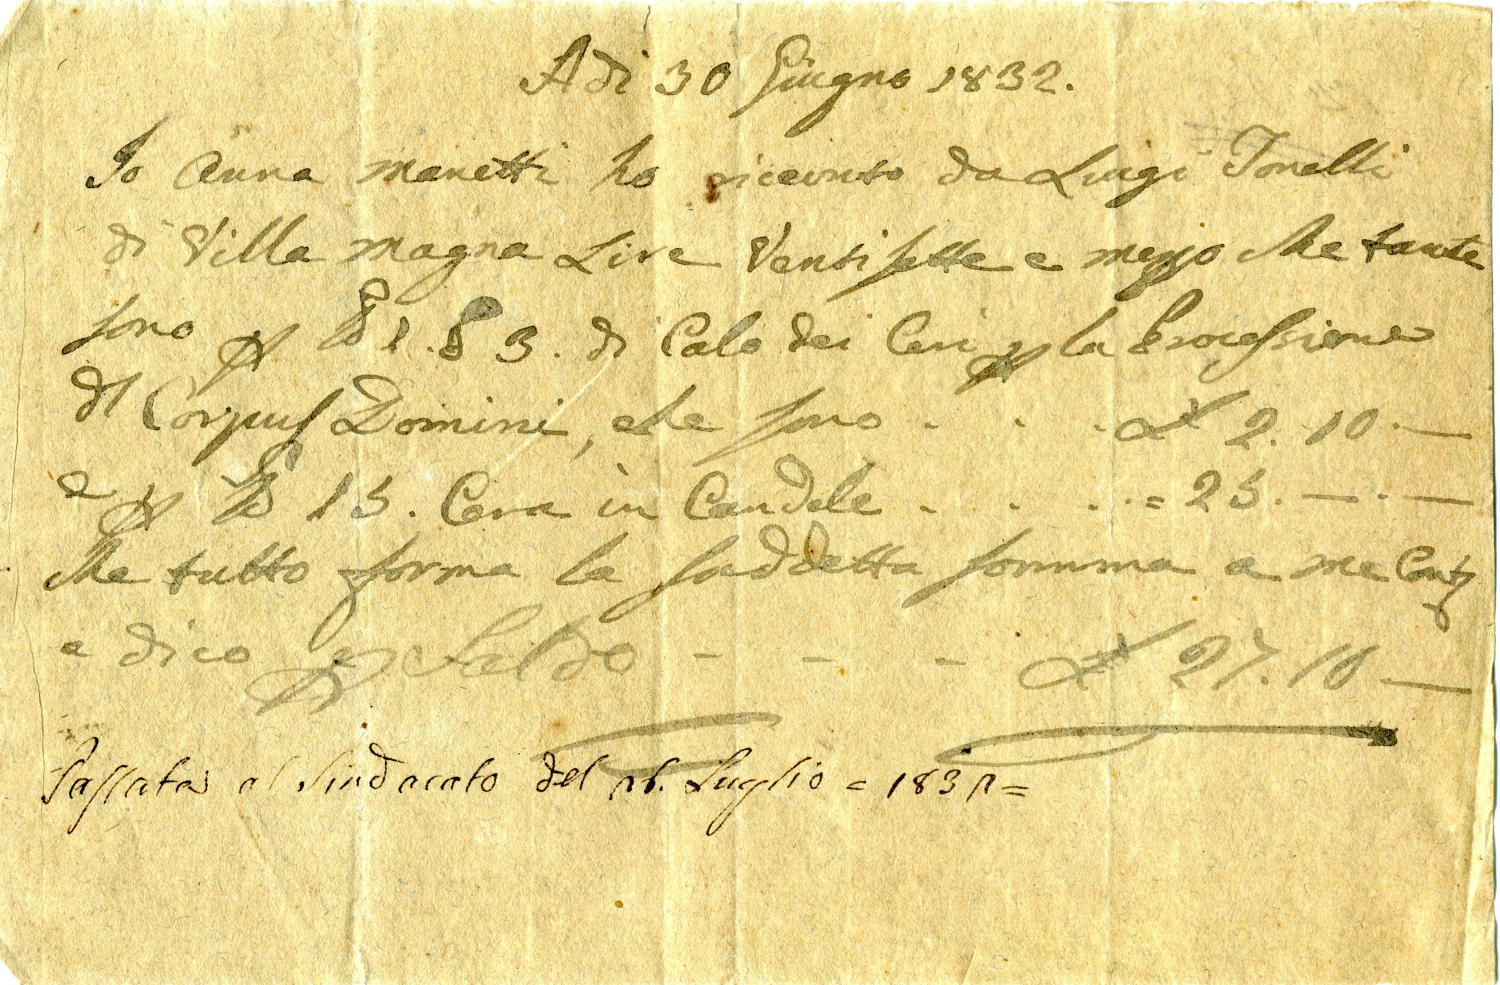 Adì 30 Giugno 1832.
Io Anna Manetti ho ricevuto da Luigi Tonelli
di Villa magna Lire Ventisette e mezzo che tante
sono p 1. 8 3. di Calo dei Ceri p la Processione
di Corpus Domini, che sono . . . £ 2. 10. —
e p ℔ 15. Cera in Candele . . . . = 25. — . —
che tutto forma la suddetta somma a me
e dico p Saldo - - - £ 27. 10 —
Passata al Sindacato del Luglio =